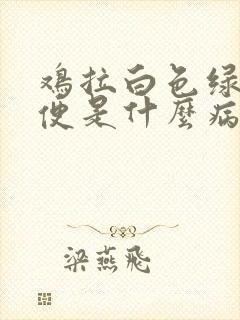 鸡拉白色绿
便是什麼病
梁燕飛